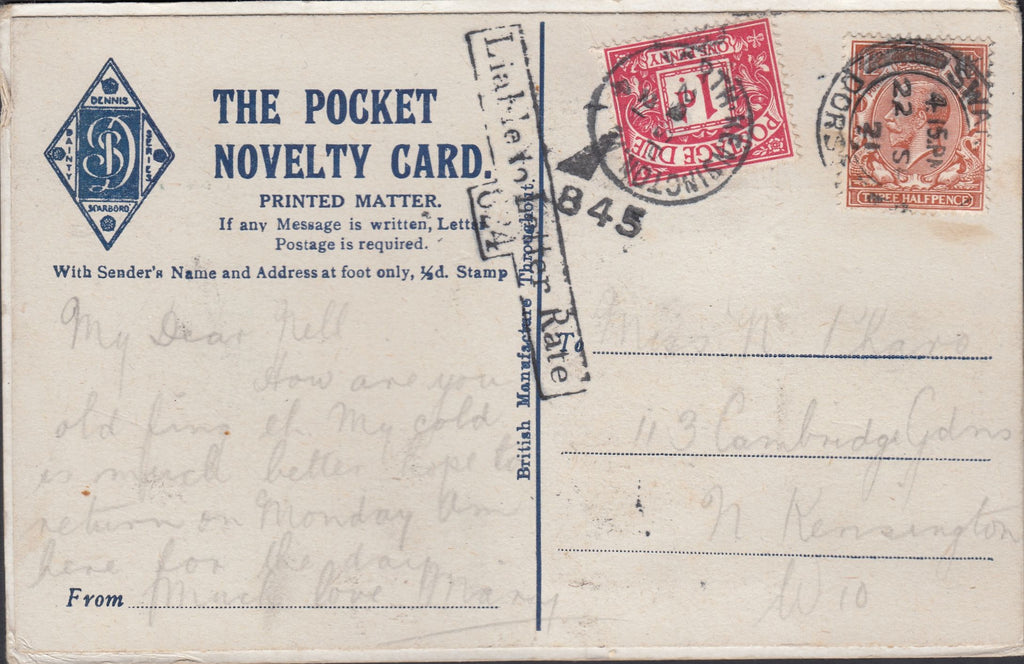 DENNIS
DAINTY
SERIES
SCARBORO'
D
THE POCKET
NOVELTY CARD.
PRINTED MATTER.
If any Message is written, Letter
Postage is required.
With Sender's Name and Address at foot only, ½d. Stamp
My Dear Nell
How are you
old fins eh My cold
is much better hope to
return on Monday Am
here for the day
Much love Mary
From
British Manufacture Throughout.
Liable to Letter Rate
B45
POSTAGE DUE
1d
ONE PENNY
NTH KENSINGTON
THREE HALFPENCE
4 15 PM
22 SP
21
DORS
To
Miss N
113 Cambridge Gdns
N Kensington
W 10